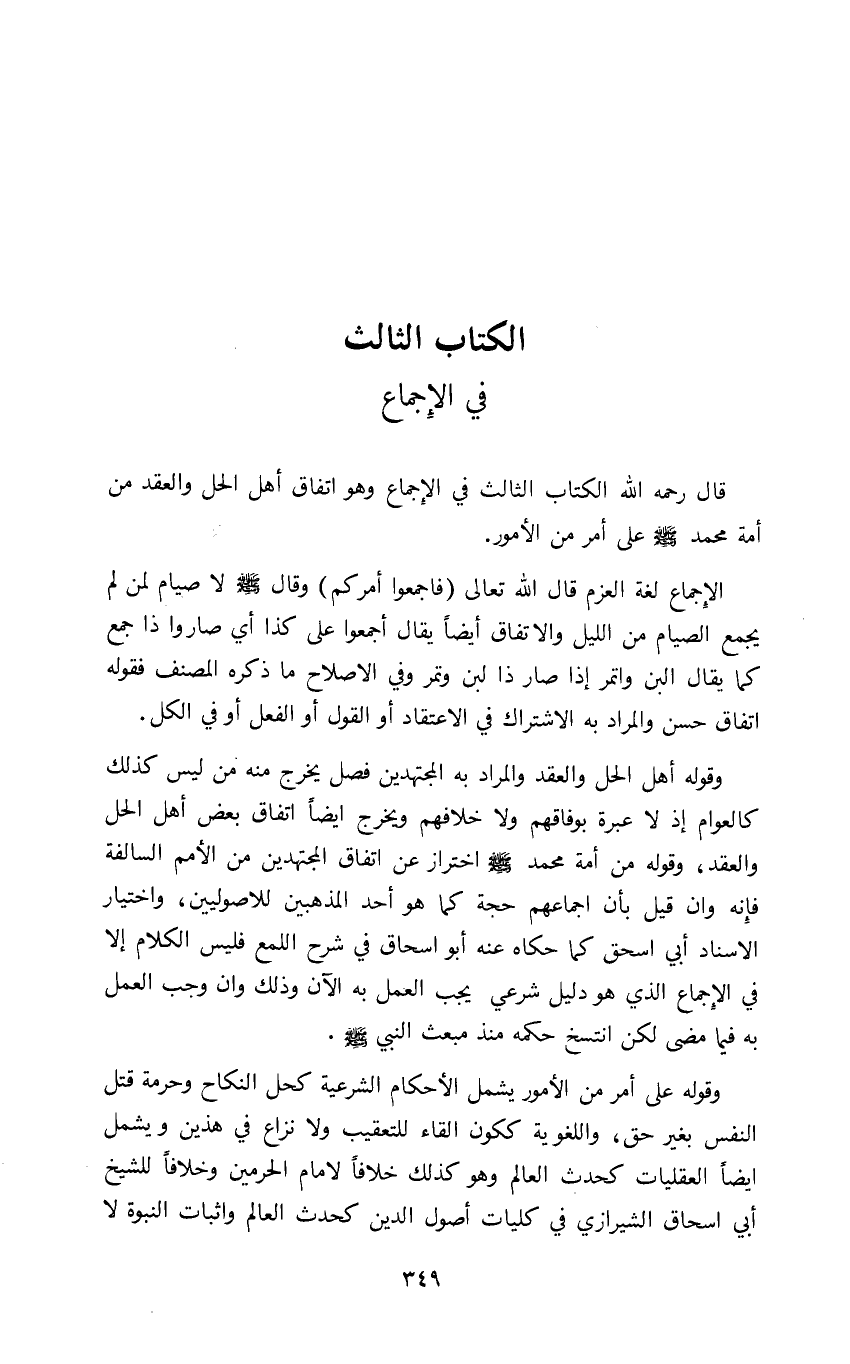 الكتاب الثالث
في الإجماع
قال رحمه الله الكتاب الثالث في الإجماع وهو اتفاق أهل الحل والعقد من
أمة محمد ﷺ على أمر من الأمور.
الإجماع لغة العزم قال الله تعالى (فاجمعوا أمركم) وقال ﷺ لا صيام لمن لم
يجمع الصيام من الليل والاتفاق أيضاً يقال أجمعوا على كذا أي صاروا ذا جمع
كما يقال البن واتمر إذا صار ذا لبن وتمر وفي الاصلاح ما ذكره المصنف فقوله
اتفاق حسن والمراد به الاشتراك في الاعتقاد أو القول أو الفعل أو في الكل.
وقوله أهل الحل والعقد والمراد به المجتهدين فصل يخرج منه من ليس كذلك
كالعوام إذ لا عبرة بوفاقهم ولا خلافهم ويخرج ايضاً اتفاق بعض أهل الحل
والعقد، وقوله من أمة محمد ﷺ اختراز عن اتفاق المجتدين من الأمم السالفة
فإنه وان قيل بأن اجماعهم حجة كما هو أحد المذهبين للاصوليين، واختيار
الاسناد أبي اسحق كما حكاه عنه أبو اسحاق في شرح اللمع فليس الكلام إلا
في الإجماع الذي هو دليل شرعي يجب العمل به الآن وذلك وان وجب العمل
به فيما مضى لكن انتسخ حكمه منذ مبعث النبي ﷺ .
وقوله على أمر من الأمور يشمل الأحكام الشرعية كحل النكاح وحرمة قتل
النفس بغير حق، واللغوية ككون القاء للتعقيب ولا نزاع في هذين ويشمل
ايضاً العقليات كحدث العالم وهو كذلك خلافاً لامام الحرمين وخلافاً للشيخ
أبي اسحاق الشيرازي في كليات أصول الدين كحدث العالم واثبات النبوة لا
٣٤٩